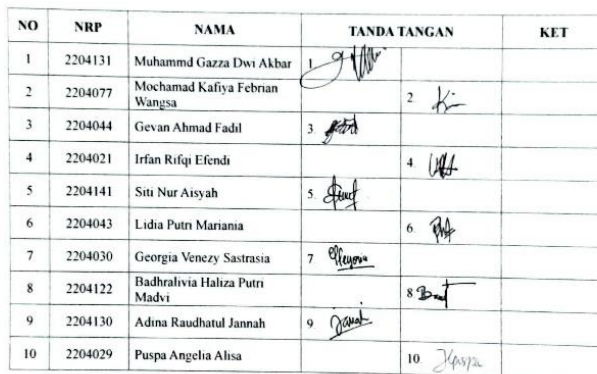 NO NRP NAMA TANDA TANGAN KET
1 2204131 Muhammd Gazza Dwi Akbar 1
2 2204077 Mochamad Kafiya Febrian Wangsa 2.
3 2204044 Gevan Ahmad Fadil 3.
4 2204021 Irfan Rifqi Efendi 4.
5 2204141 Siti Nur Aisyah 5.
6 2204043 Lidia Putri Mariania 6.
7 2204030 Georgia Venezy Sastrasia 7
8 2204122 Badhralivia Haliza Putri Madvi 8
9 2204130 Adina Raudhatul Jannah 9.
10 2204029 Puspa Angelia Alisa 10.